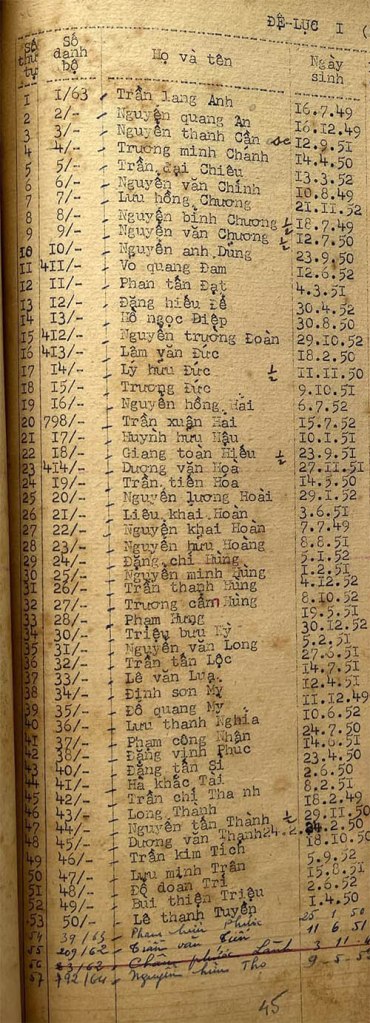 ĐỆ-LỤC I (
Số thứ tự Số danh bộ Họ và tên Ngày sinh
I I/63 Trần lang Anh 16.7.49
2 2/- Nguyễn quang Ân 16.12.49
3 3/- Nguyễn thanh Cần 12.9.5I
4 4/- Trương minh Chánh 14.4.50
5 5/- Trần đại Chiêu 13.3.52
6 6/- Nguyễn văn Chính 10.8.49
7 7/- Lưu hồng Chương 21.II.52
8 8/- Nguyễn bỉnh Chương ½ 18.7.49
9 9/- Nguyễn văn Chương ½ 12.7.50
10 10/- Nguyễn anh Dũng 23.9.50
II 4II/- Võ quang Đam 12.6.52
I2 II/- Phan tấn Đạt 4.3.5I
I3 I2/- Đặng hiếu Đễ 30.4.52
I4 I3/- Hồ ngọc Điệp 30.8.50
I5 4I2/- Nguyễn trường Đoàn 29.10.52
I6 4I3/- Lâm văn Đức 18.2.50
I7 I4/- Lý hữu Đức ½ II.II.50
I8 I5/- Trương Đức 9.10.5I
I9 I6/- Nguyễn hồng Hải 6.7.52
20 798/- Trần xuân Hải 15.7.52
2I I7/- Huỳnh hữu Hậu 10.I.5I
22 I8/- Giang toàn Hiếu ½ 23.9.5I
23 4I4/- Dương văn Hòa 27.II.5I
24 I9/- Trần tiến Hòa 14.5.50
25 20/- Nguyễn lương Hoài 29.I.52
26 2I/- Liêu khai Hoàn 3.6.5I
27 22/- Nguyễn khai Hoàn 7.7.49
28 23/- Nguyễn hữu Hoàng 8.8.5I
29 24/- Đặng chí Hùng 5.I.52
30 25/- Nguyễn minh Hùng I.2.5I
3I 26/- Trần thanh Hùng 4.12.52
32 27/- Trương cẩm Hùng 8.10.52
33 28/- Phạm Hưng 19.5.5I
34 30/- Triệu bửu Kỳ 30.12.52
35 3I/- Nguyễn văn Long 5.2.5I
36 32/- Trần tấn Lộc 27.6.5I
37 33/- Lê văn Lụa 14.7.5I
38 34/- Đinh sơn Mỹ 12.4.5I
39 35/- Đỗ quang Mỹ II.12.49
40 36/- Lưu thanh Nghĩa 10.6.52
4I 37/- Phạm công Nhận 24.7.50
42 38/- Đặng vinh Phúc 14.6.5I
43 40/- Đặng tấn Sĩ 23.4.50
44 4I/- Hà khắc Tài 2.6.50
45 42/- Trần chí Thanh 8.2.5I
46 43/- Long Thành 18.2.49
47 44/- Nguyễn tấn Thành ½ 29.II.50
48 45/- Dương văn Thạnh 24.2.50
49 46/- Trần kim Tích 18.10.50
50 47/- Lưu minh Trân 5.9.52
5I 48/- Đỗ doãn Trí 15.8.5I
52 49/- Bùi thiện Triệu 2.6.52
53 50/- Lê thanh Tuyền I.4.50
54 39/63 Phạm hữu Phước 25 1 50
55 209/62 Trần văn Tiến 11 6 51
56 83/62 Châu phước Lành 3 11 4
57 792/64 Nguyễn hữu Thọ 9-5-5
45